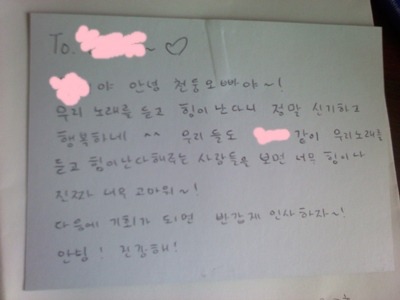 To. ~ ♡
야 안녕 천둥오빠야~!
우리 노래를 듣고 힘이 난다니 정말 신기하고
행복하네 ^^ 우리들도 같이 우리노래를
듣고 힘이난다해주는 사람들을 보면 너무 힘이나
진짜 너무 고마워~!
다음에 기회가 되면 반갑게 인사하자~!
안녕! 건강해!